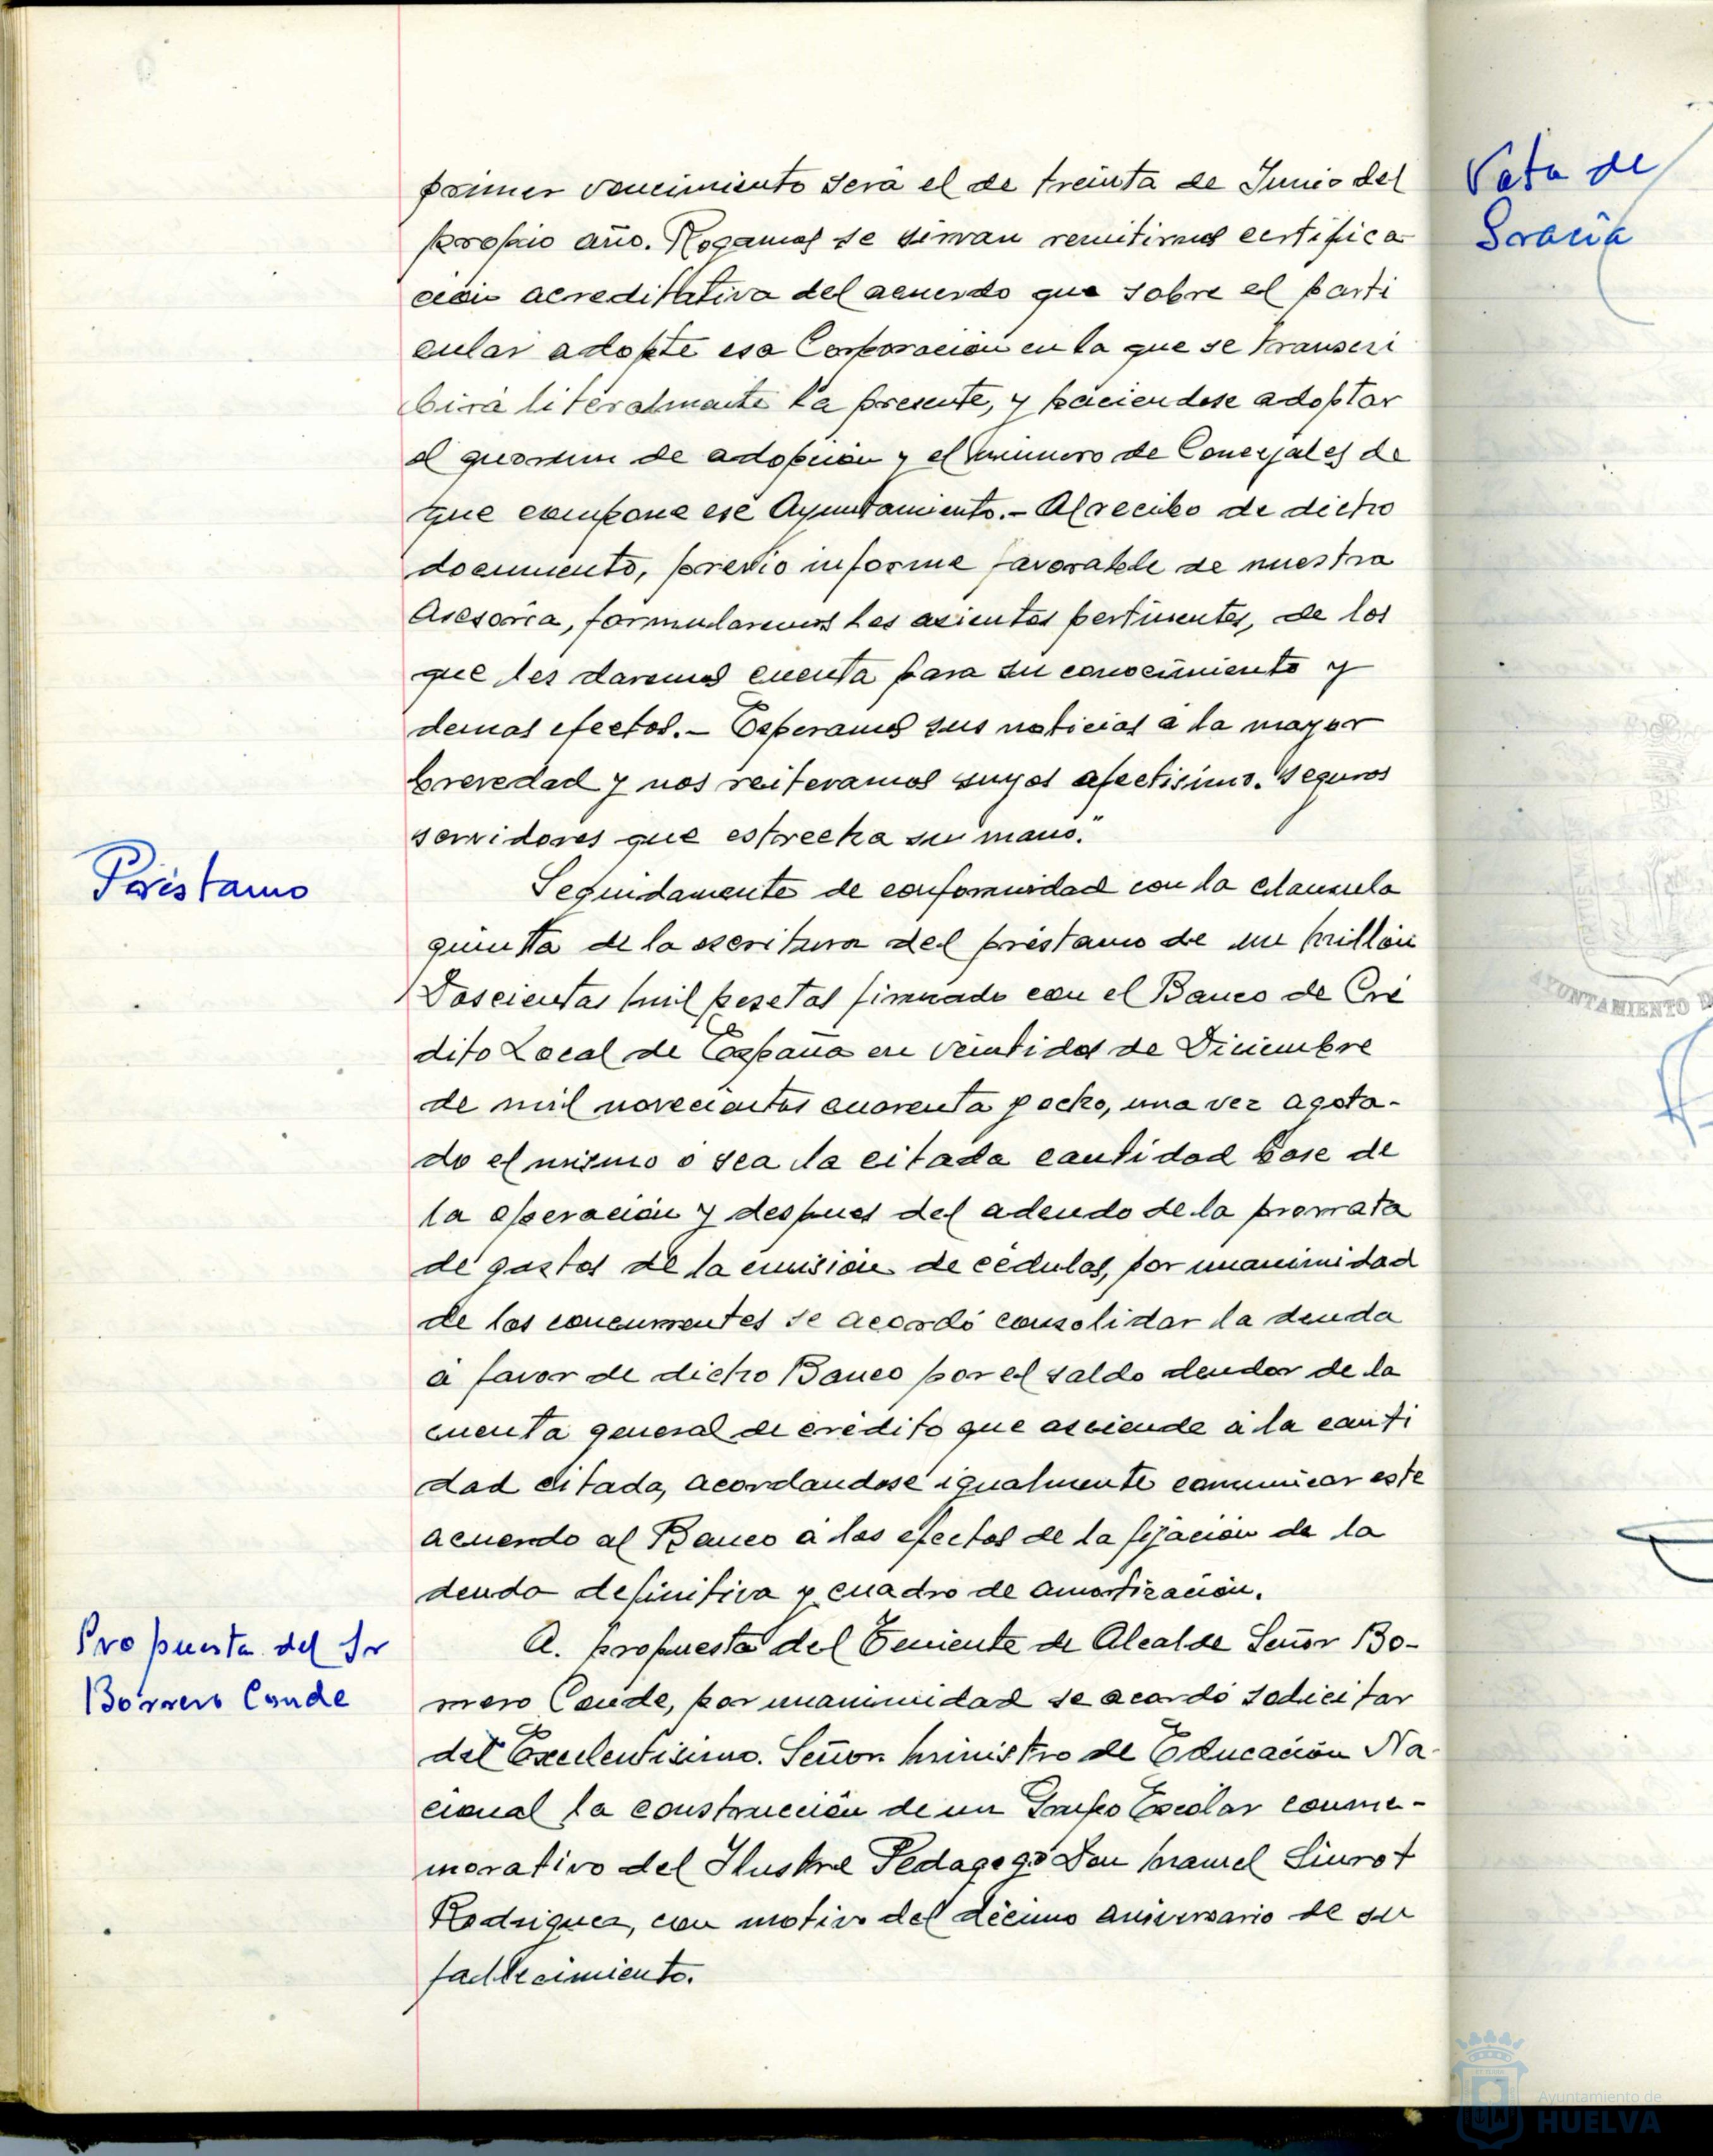 primer vencimiento será el de treinta de Junio del
propio año. Rogamos se sirvan remitirnos certifica-
ción acreditativa del acuerdo que sobre el parti
cular adopte esa Corporación en la que se transcri
birá literalmente la presente, y haciendose adoptar
el quorum de adopción y el número de Concejales de
que compone ese Ayuntamiento.- Al recibo de dicho
documento, previo informe favorable de nuestra
Asesoría, formularemos los asientos pertinentes, de los
que les daremos cuenta para su conocimiento y
demas efectos.- Esperamos sus noticias a la mayor
brevedad y nos reiteramos suyos afectisimo. seguros
servidores que estrecha su mano."
Préstamo
Seguidamente de conformidad con la clausula
quinta de la escritura del préstamo de un millón
Doscientas mil pesetas firmado con el Banco de Cré
dito Local de España en veintidos de Diciembre
de mil novecientos cuarenta y ocho, una vez agota-
do el mismo o sea la citada cantidad base de
la operación y despues del adeudo de la prorrata
de gastos de la emisión de cédulas, por unanimidad
de los concurrentes se acordó consolidar la deuda
á favor de dicho Banco por el saldo deudor de la
cuenta general de crédito que asciende á la canti
dad citada, acordandose igualmente comunicar este
acuerdo al Banco á los efectos de la fijación de la
deuda definitiva y cuadro de amortización.
Propuesta del Sr
Borrero Conde
A. propuesta del Teniente de Alcalde Señor Bo-
rrero Conde, por unanimidad se acordó solicitar
del Excelentisimo. Señor Ministro de Educación Na-
cional la construcción de un Grupo Escolar conme-
morativo del Ilustre Pedagogo Don Manuel Siurot
Rodriguez, con motivo del décimo aniversario de su
fallecimiento.
Vata de
Gracia
AYUNTAMIENTO D
Ayuntamiento de
HUELVA